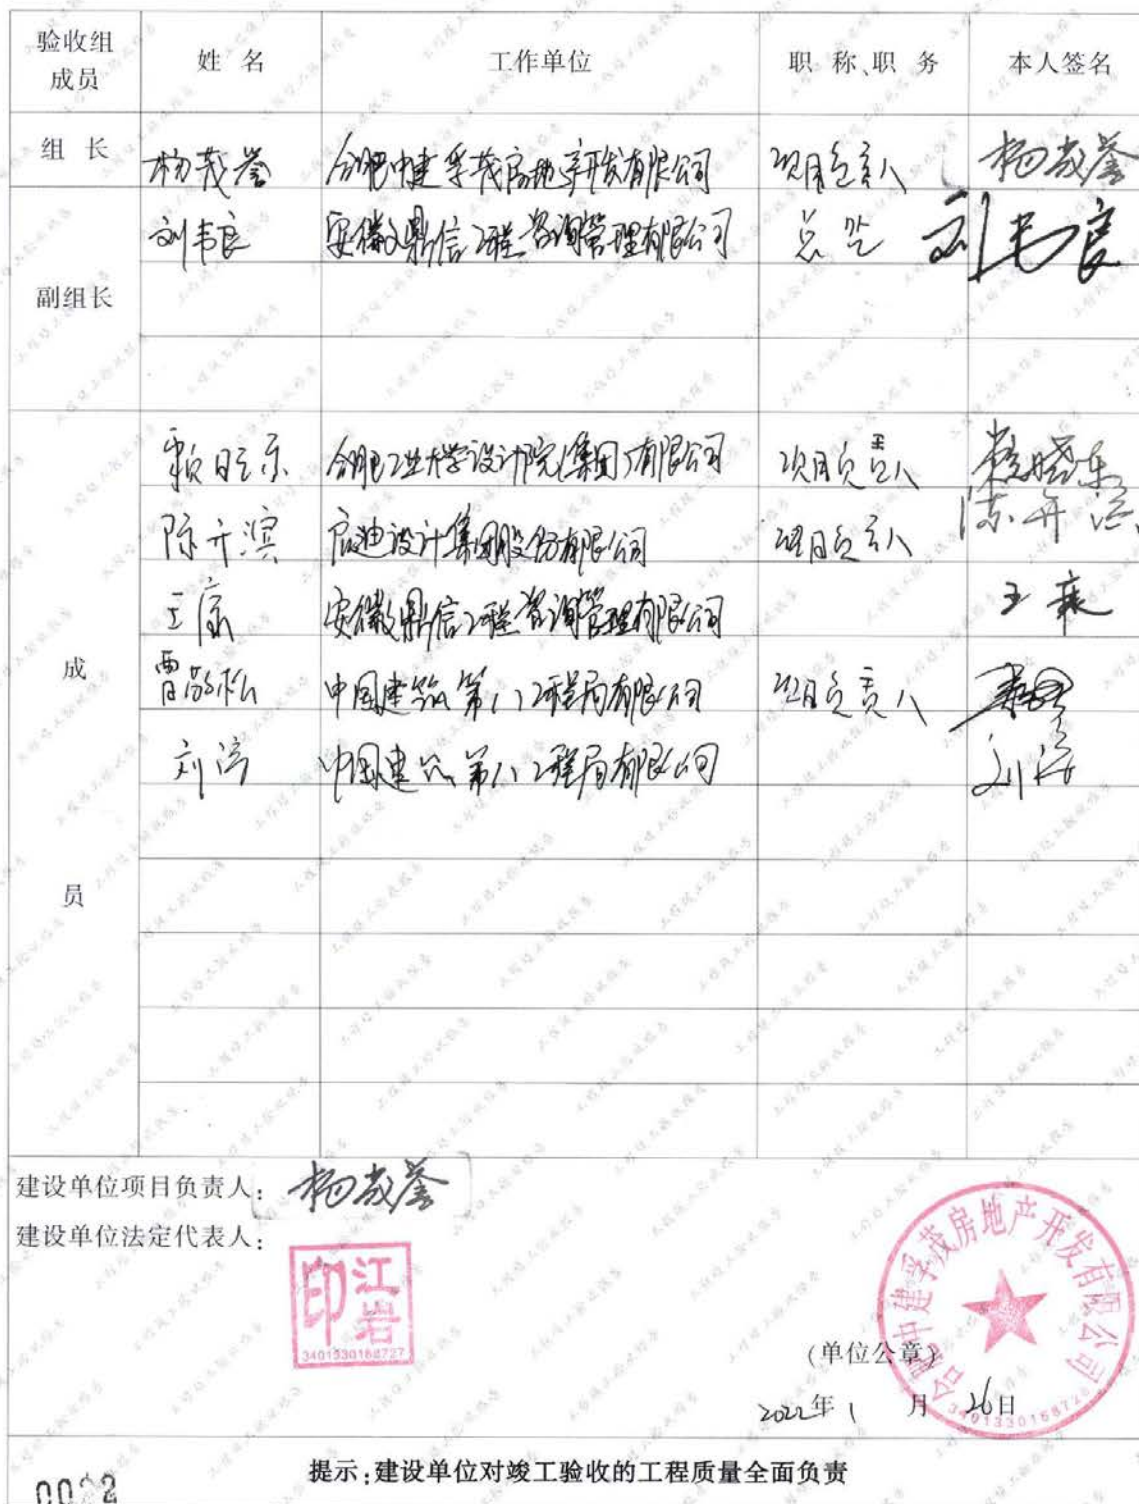 验收组成员 姓 名 工作单位 职 称、职 务 本人签名
组 长 杨茂誉 合肥中建孚茂房地产开发有限公司 项目负责人 杨茂誉
刘韦良 安徽鼎信工程咨询管理有限公司 总监 刘韦良
副组长
合肥工业大学设计院(集团)有限公司 项目负责人
陈开滨 启迪设计集团股份有限公司 项目负责人 陈开滨
王康 安徽鼎信工程咨询管理有限公司 王康
成
曹敬松 中国建筑第八工程局有限公司 项目负责人
刘涛 中国建筑第八工程局有限公司 刘涛
员
建设单位项目负责人: 杨茂誉
建设单位法定代表人:
江岩印
3401330168727
合肥中建孚茂房地产开发有限公司
(单位公章)
2022年1月26日
提示:建设单位对竣工验收的工程质量全面负责
0022
工程竣工验收报告